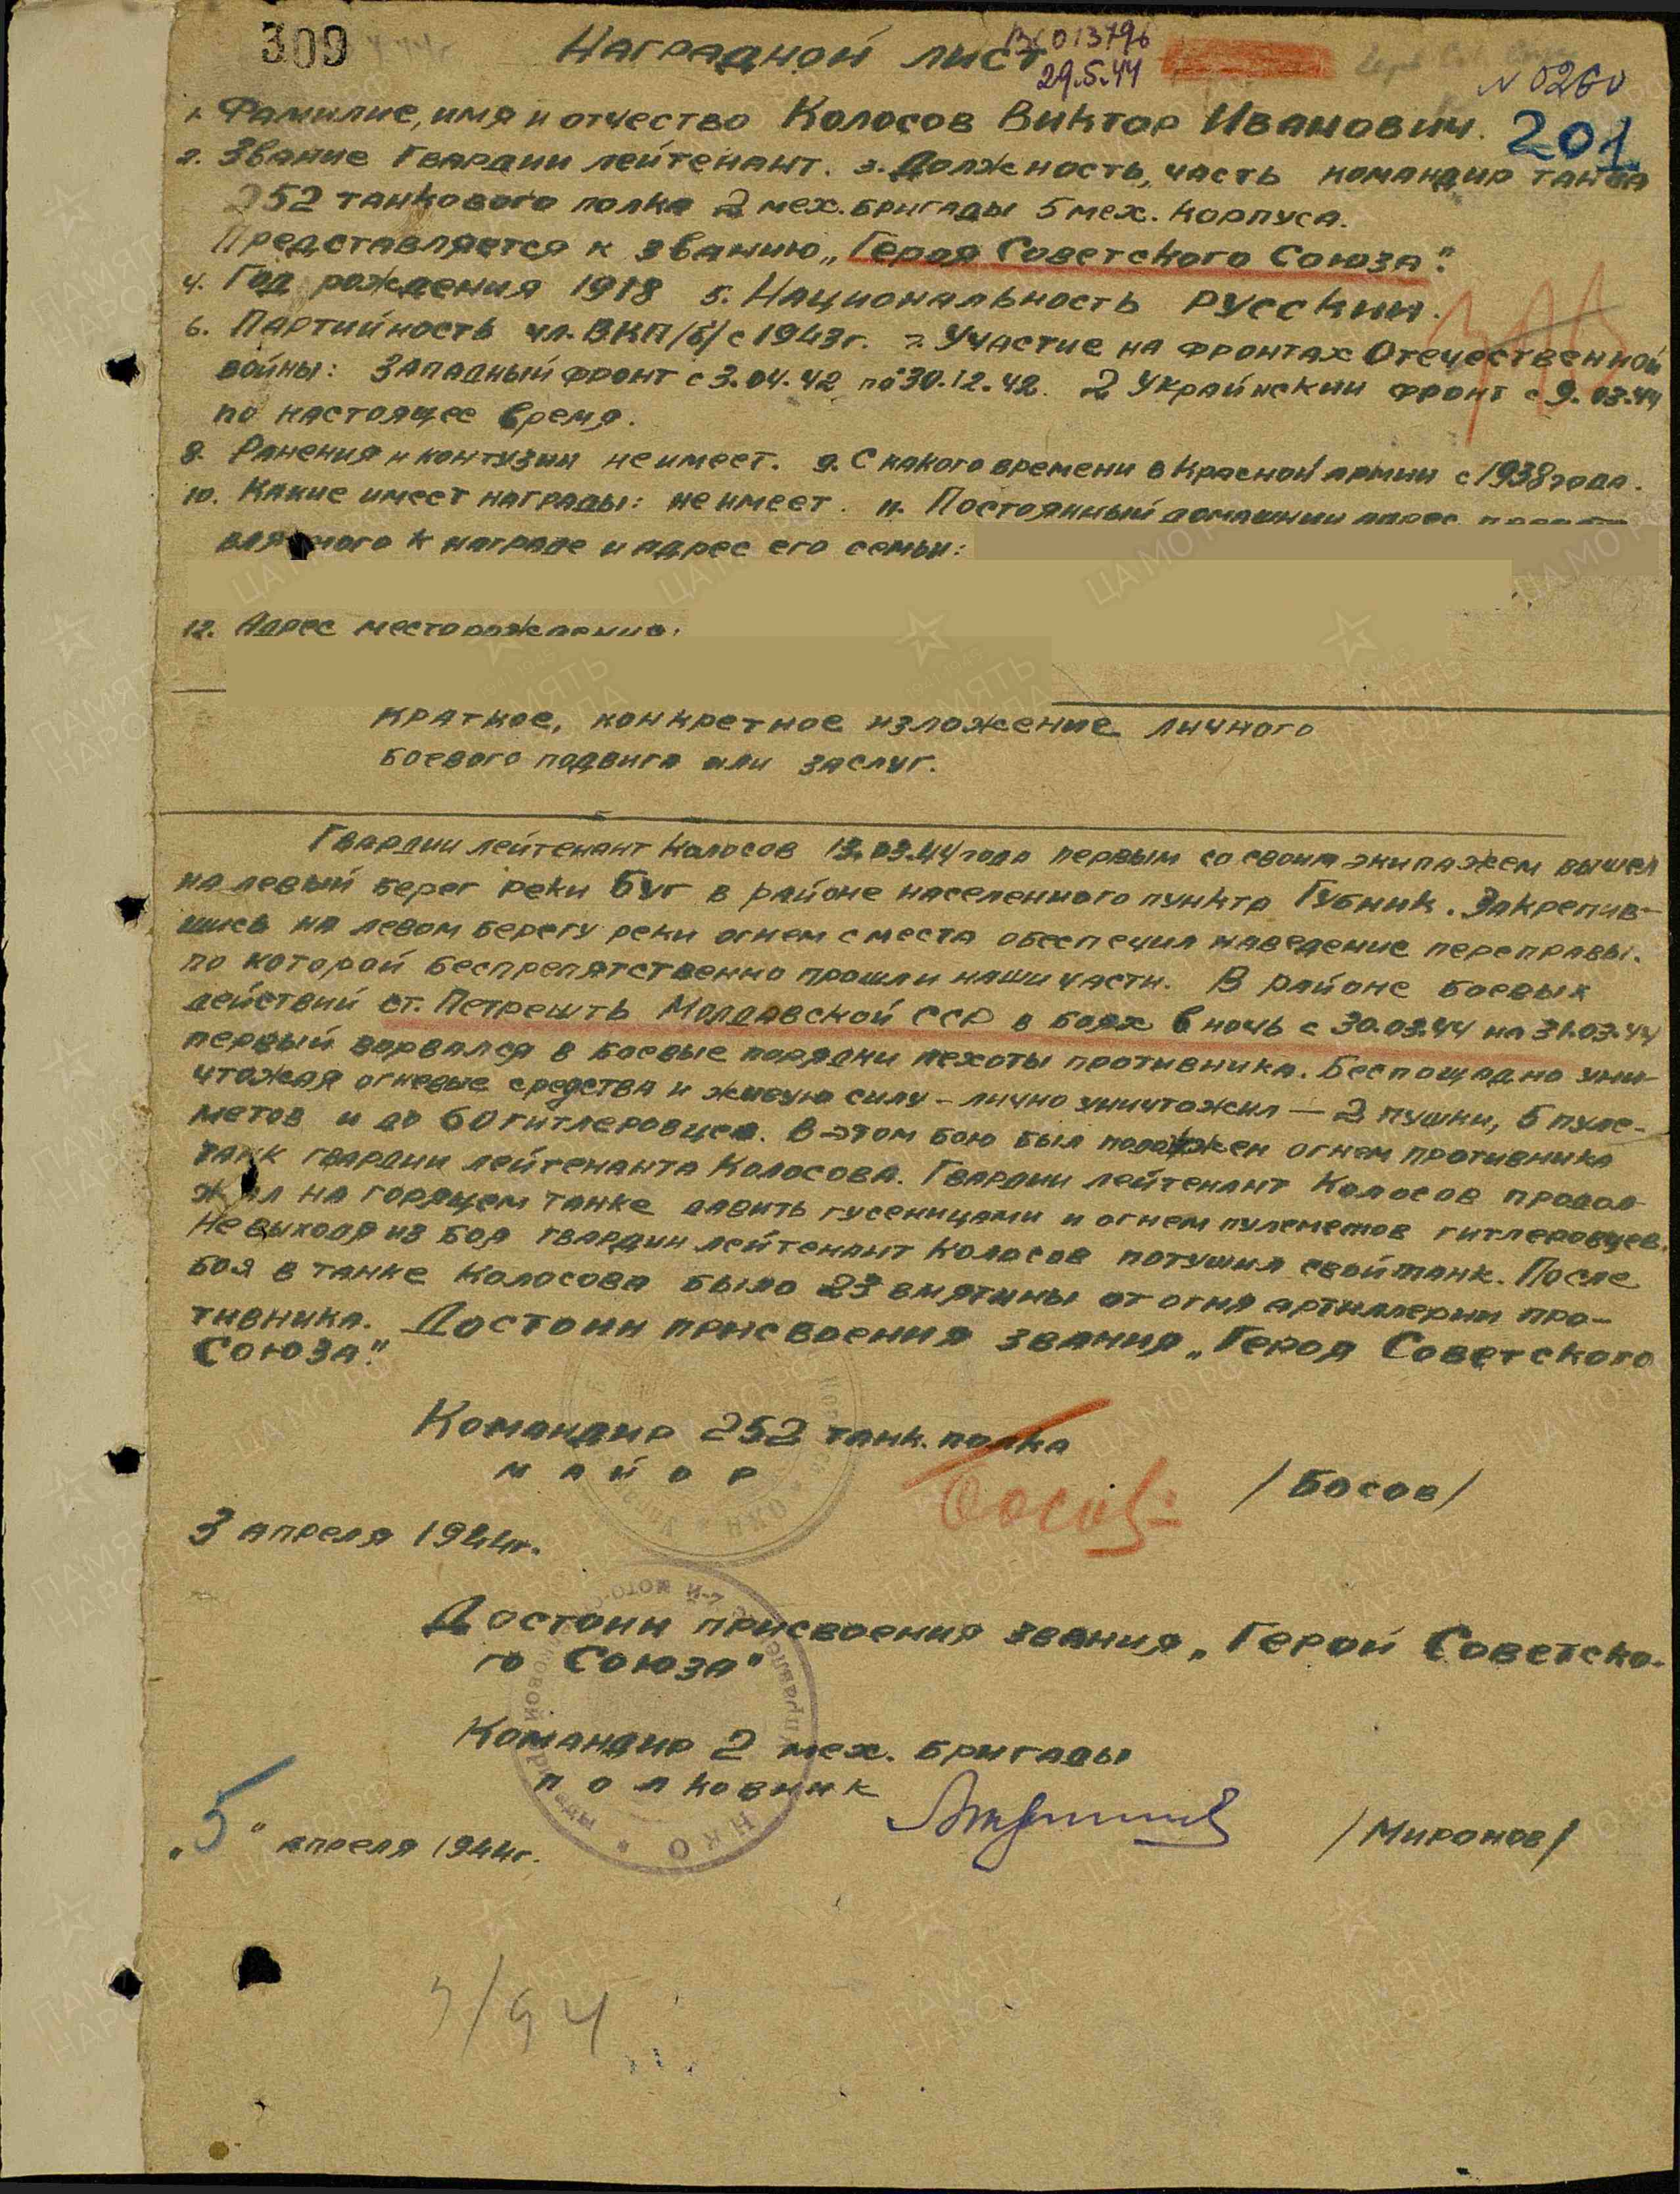 309
Наградной лист
ВХ 013796
29.5.44
N 0260
201
1. Фамилие, имя и отчество Колосов Виктор Иванович.
2. Звание Гвардии лейтенант. 3. Должность, часть командир танка
252 танкового полка 2 мех. бригады 5 мех. корпуса.
Представляется к званию „Героя Советского Союза".
4. Год рождения 1918 5. Национальность русский.
6. Партийность чл. ВКП/б/ с 1943г. 7. Участие на фронтах Отечественной
войны: Западный фронт с 3.04.42 по 30.12.42. 2 Украйнский фронт с 9.03.44
по настоящее время.
8. Ранения и контузии не имеет. 9. С какого времени в Красной армии с 1938 года.
10. Какие имеет награды: не имеет. 11. Постоянный домашний адрес
к награде и адрес его семьи:
12. Адрес месторождения:
Краткое, конкретное изложение личного
боевого подвига или заслуг.
Гвардии лейтенант Колосов 13.03.44 года первым со своим экипажем вышел
на левый берег реки Буг в районе населенного пункта Губник. Закрепив-
шись на левом берегу реки огнем с места обеспечил наведение переправы.
по которой беспрепятственно прошли наши части. В районе боевых
действий ст. Петрешть Молдавской ССР в боях в ночь с 30.03.44 на 31.03.44
первый ворвался в боевые порядки пехоты противника. Беспощадно уни-
чтожая огневые средства и живую силу – лично уничтожил – 2 пушки, 5 пуле-
метов и до 60 гитлеровцев. В этом бою был подожжен огнем противника
танк гвардии лейтенанта Колосова. Гвардии лейтенант Колосов продол-
жал на горящем танке давить гусеницами и огнем пулеметов гитлеровцев.
Не выходя из боя гвардии лейтенант Колосов потушил свой танк. После
боя в танке Колосова было 23 вмятины от огня артиллерии про-
тивника. Достоин присвоения звания „Героя Советского
Союза".
Командир 252 танк. полка
майор
Босов
/Босов/
3 апреля 1944г.
Достоин присвоения звания „Герой Советско-
го Союза"
Командир 2 мех. бригады
полковник
/Миронов/
„5" апреля 1944г.
НКО